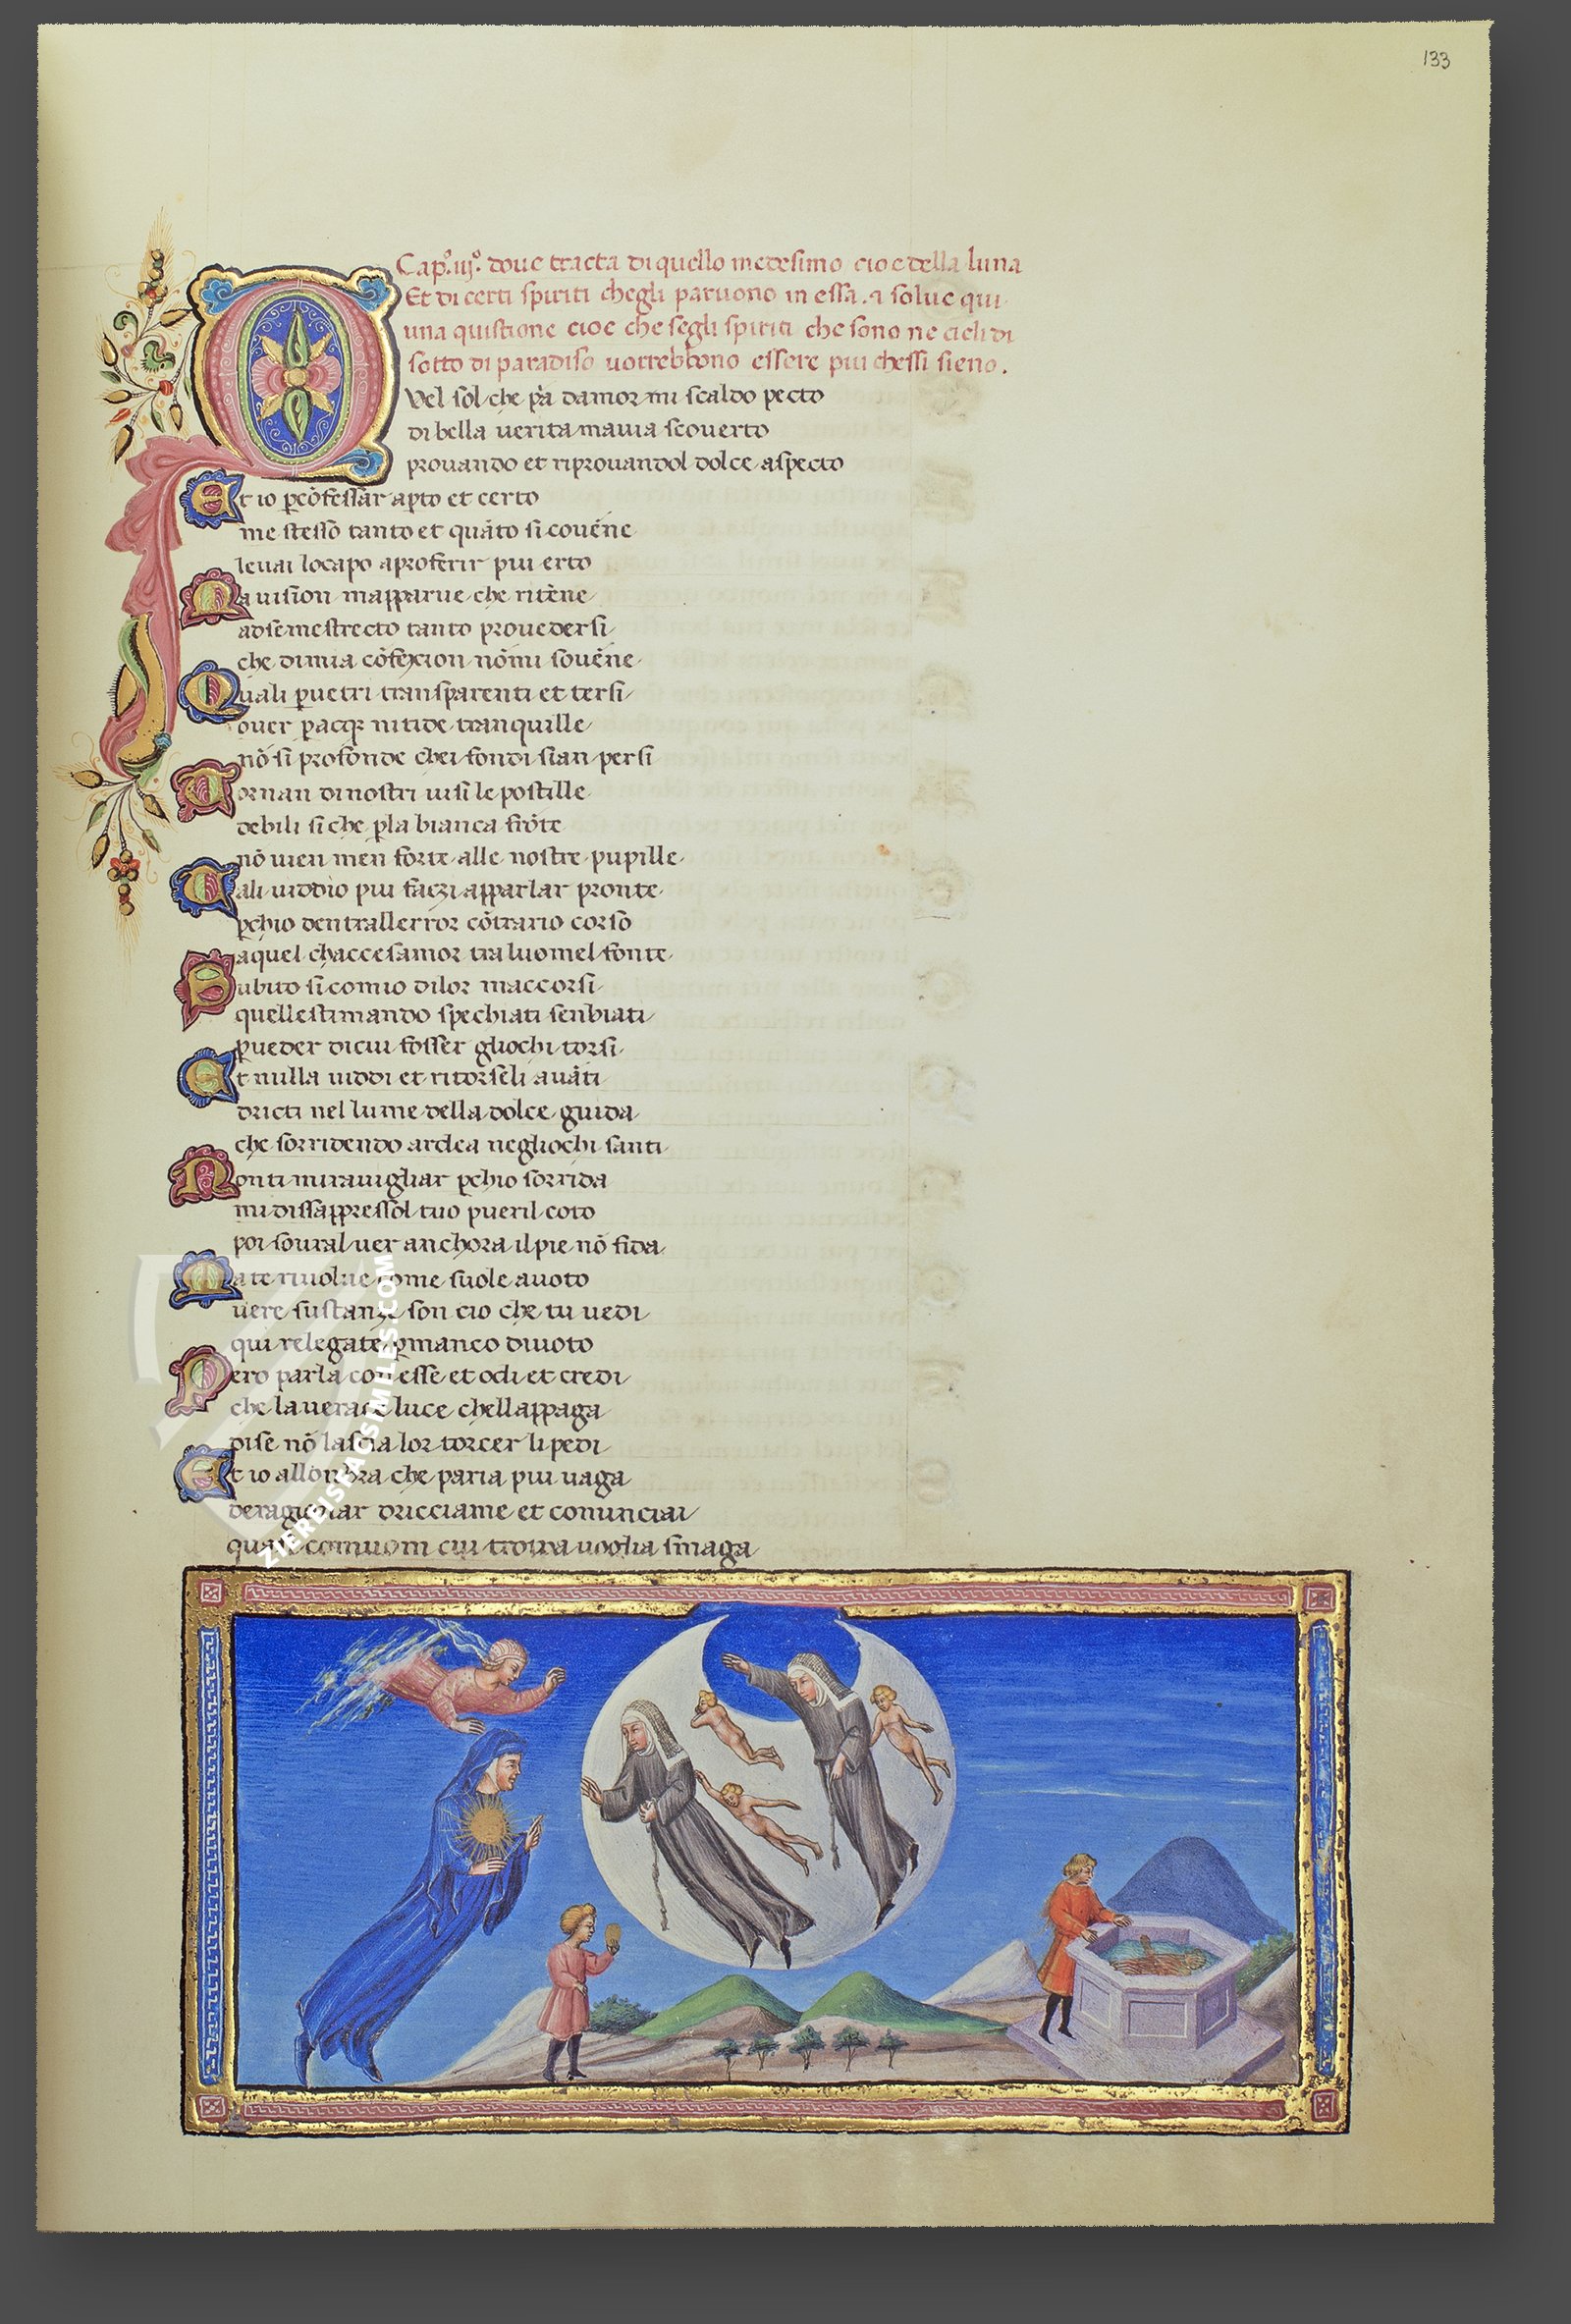 133
Cap.º iijº. doue tracta di quello medesimo cioe della luna
Et di certi spiriti chegli paruono in essa. ⁊ solue qui
una quistione cioe che segli spiriti che sono ne cieli di
sotto di paradiso uorrebbono essere piu chessi sieno.
Quel sol che pͣa damor mi scaldo pecto
di bella uerita mauia scouerto
prouando et riprouandol dolce aspecto
Et io ꝑcōfessar aꝑto et certo
me stesso tanto et quāto si couēne
leuai locapo aproferir piu erto
Ma uision mapparue che ritēne
adse me strecto tanto ꝑ uedersi
che di mia cōfexion nō mi souēne
Quali ꝑ uetri transparenti et tersi
ouer ꝑ acqꝫ nitide tranquille
nō si profonde chei fondi sian persi
Tornan di nostri uisi le postille
debili si che ꝑla bianca frōte
nō uien men forte alle nostre pupille
Tali uiddio piu faczi apparlar pronte
ꝑchio dentrallerror cōtrario corso
aquel chaccesamor tra luomel fonte
Subito si comio di lor maccorsi
quellestimando spechiati senbiati
ꝑ ueder di cui fosser gliochi torsi
Et nulla uiddi et ritorseli auāti
dricti nel lume della dolce guida
che sorridendo ardea negliochi santi
Non ti marauigliar ꝑchio sorrida
mi dissappressol tuo pueril coto
poi soural uer anchora il pie nō fida
Ma te riuolue come suole auoto
uere sustanze son cio che tu uedi
qui relegate ꝑ manco diuoto
Pero parla con esse et odi et credi
che la uerace luce chellappaga
dise nō lascia lor torcer li piedi
Et io allonbra che paria piu uaga
deragionar dricciame et cominciai
quasi comuom cui troppa uoglia smaga
ZIEREISFACSIMILES.COM